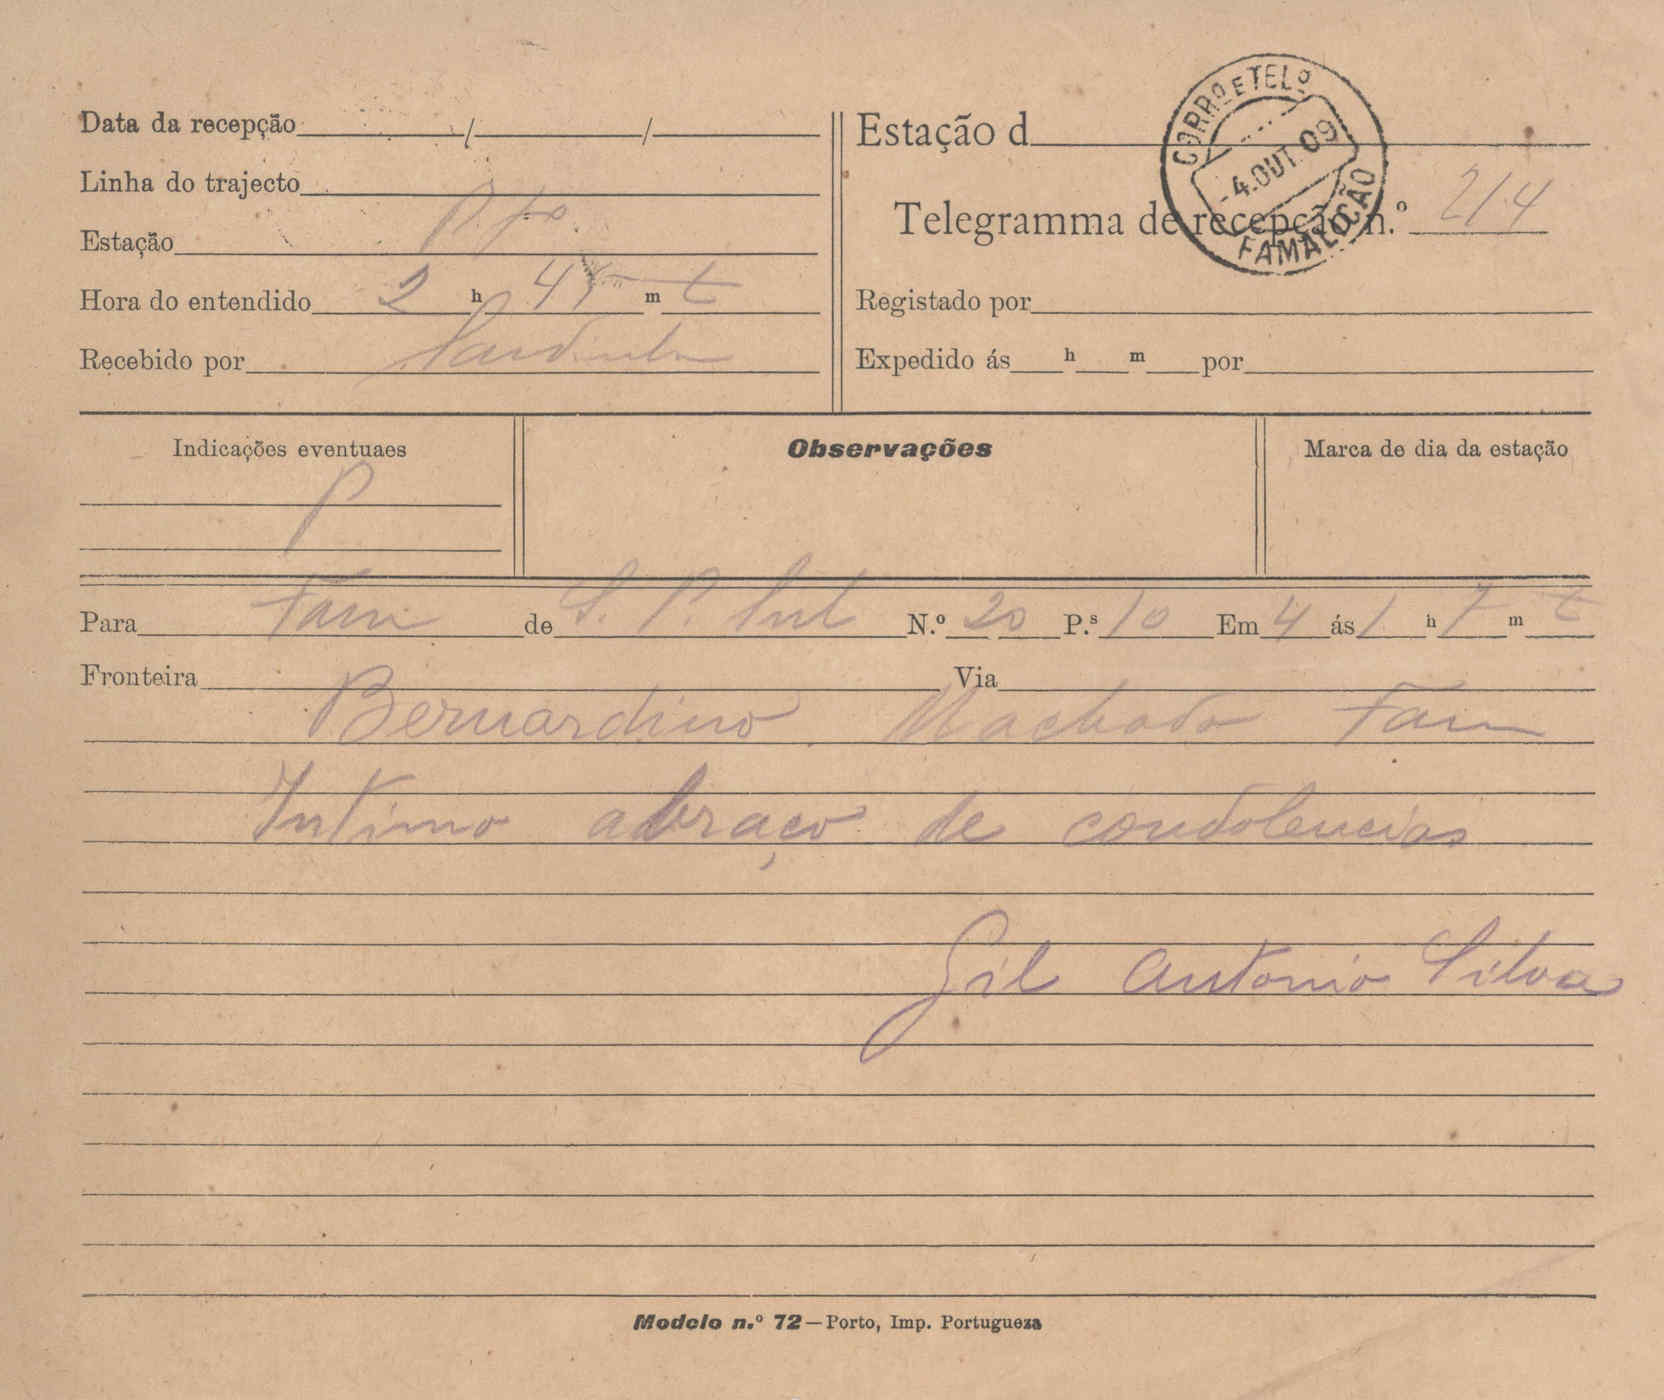 Data da recepção / /
Linha do trajecto
Estação P.to
Hora do entendido 2 h 45 m t
Recebido por Sardinha
Estação d
CORRO E TELO
-4.OUT.09
FAMALICÃO
Telegramma de recepção n.º 214
Registado por
Expedido ás h m por
Indicações eventuaes
P
Observações
Marca de dia da estação
Para Fam de S. P. Sul N.º 20 P.s 10 Em 4 ás 1 h 7 m t
Fronteira Via
Bernardino Machado Fam
Intimo abraço de condolencias
Gil Antonio Silva
Modelo n.º 72—Porto, Imp. Portugueza